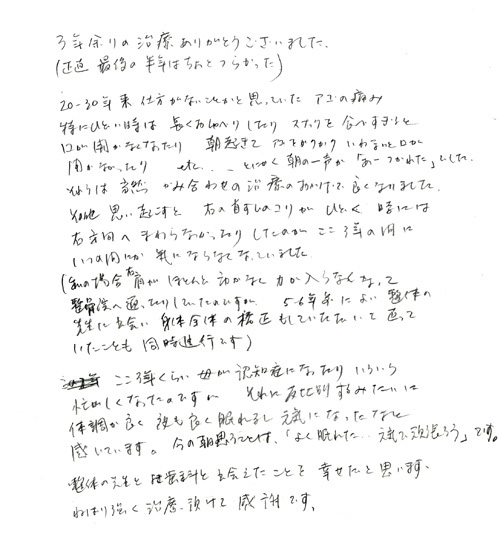 3年余りの治療ありがとうございました。
(正直 最後の半年はちょとつらかった)
20-30年来 仕方がないことかと思っていた アゴの痛み
特にひどい時は 長くおしゃべりしたり スナックを食べすぎると
口が開かなくなったり 朝起きて アゴをカクカクいわせないと口が
開かなかったり etc... とにかく朝の一声が「あーつかれた」でした。
それらは 当然 かみ合わせの治療のおかげで良くなりました。
その他 思い起こすと 右の首すじのコリがひどく 時には
右方向へ まわらなかったり したのが ここ3年の間に
いつの間にか 気にならなくなっていました。
(私の場合 右肩が ほとんど動かなく 力が入らなくなって
整骨院へ通ったりしていたのですが 5-6年前に よい整体の
先生に出会い 身体全体の矯正もしていただいて直って
いたことも 同時進行です)
ここ3年くらい 母が認知症になったり いろいろ
忙しくなったのですが それに反比例するみたいに
体調が良く 夜も良く眠れるし 元気になったなと
感じています。 今の朝思うことは、「よく眠れた.. 元気で頑張ろう」です。
整体の先生と 歯科と出会えたことを 幸せだと思います。
ねばり強く治療 頂けて 感謝です。